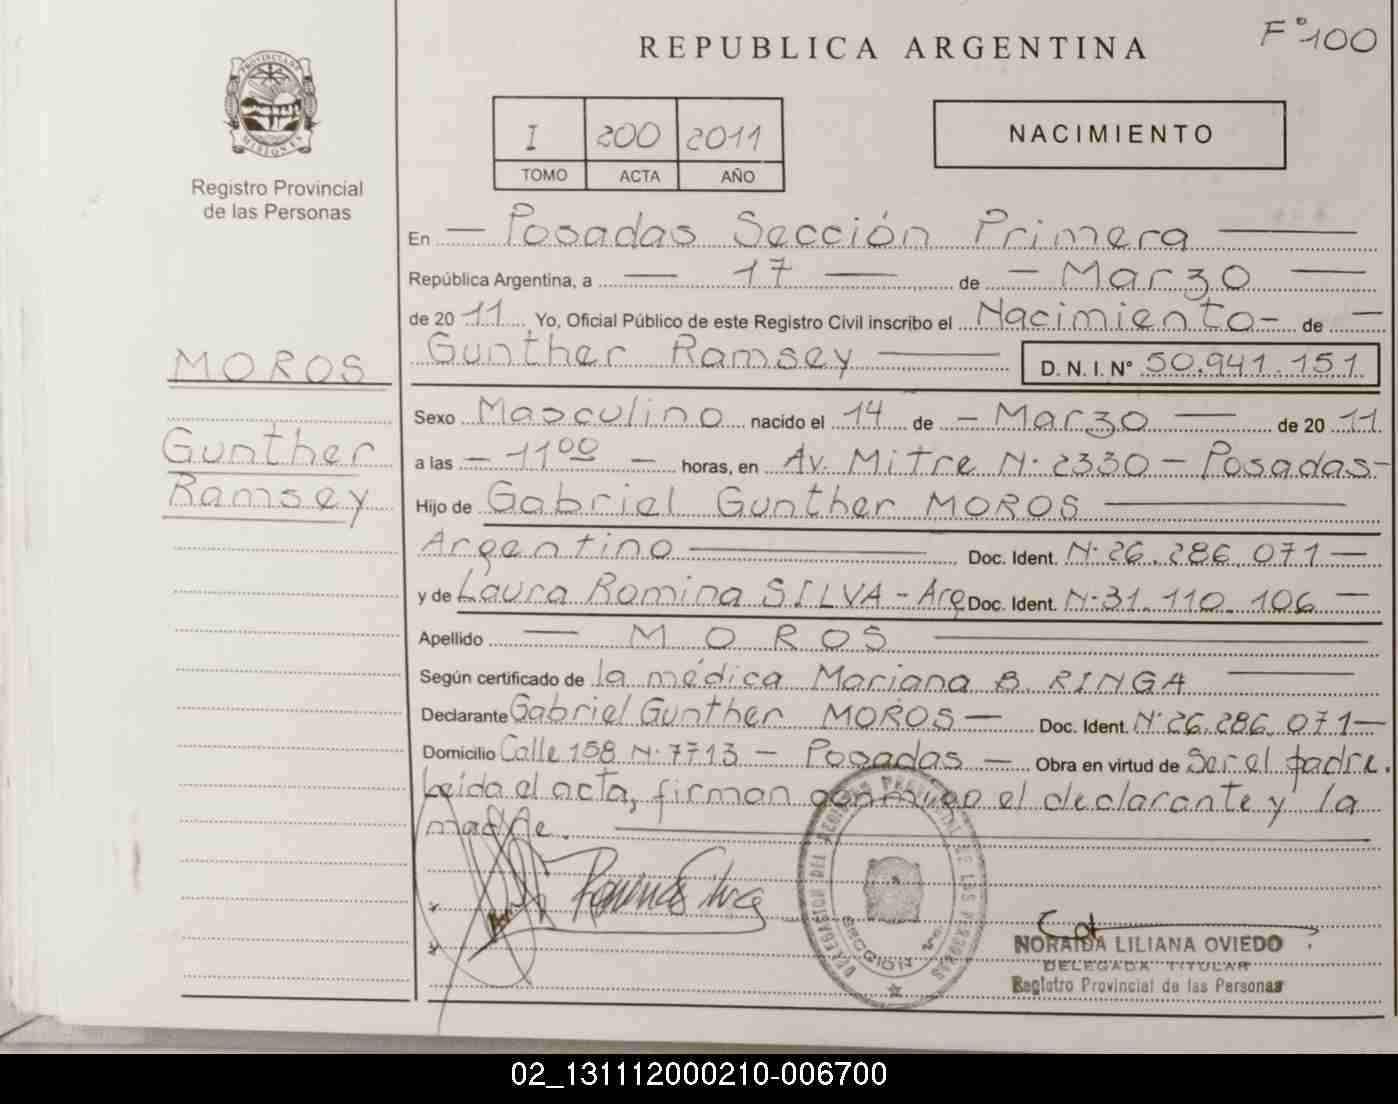 F° 100
REPUBLICA ARGENTINA
PROVINCIA DE MISIONES
Registro Provincial
de las Personas
I 200 2011
TOMO ACTA AÑO
NACIMIENTO
En — Posadas Sección Primera —
República Argentina, a — 17 — de — Marzo —
de 20 11 Yo, Oficial Público de este Registro Civil inscribo el Nacimiento — de —
Gunther Ramsey — D. N. I. N° 50.941.151
MOROS
Gunther
Ramsey
Sexo Masculino nacido el 14 de — Marzo — de 20 11
a las — 11 00 — horas, en Av. Mitre N· 2330 — Posadas —
Hijo de Gabriel Gunther MOROS —
Argentino — Doc. Ident. N· 26.286.071 —
y de Laura Romina SILVA - Arg Doc. Ident. N· 31.110.106 —
Apellido — MOROS —
Según certificado de la médica Mariana B. RINGA —
Declarante Gabriel Gunther MOROS — Doc. Ident. N· 26.286.071 —
Domicilio Calle 158 N· 7713 — Posadas — Obra en virtud de Ser el padre.
Leída el acta, firman conmigo el declarante y la
madre. —
DELEGACION DEL REGISTRO PROVINCIAL DE LAS PERSONAS
SECCION 1a.
NORAIDA LILIANA OVIEDO
DELEGADA TITULAR
Registro Provincial de las Personas
02_131112000210-006700